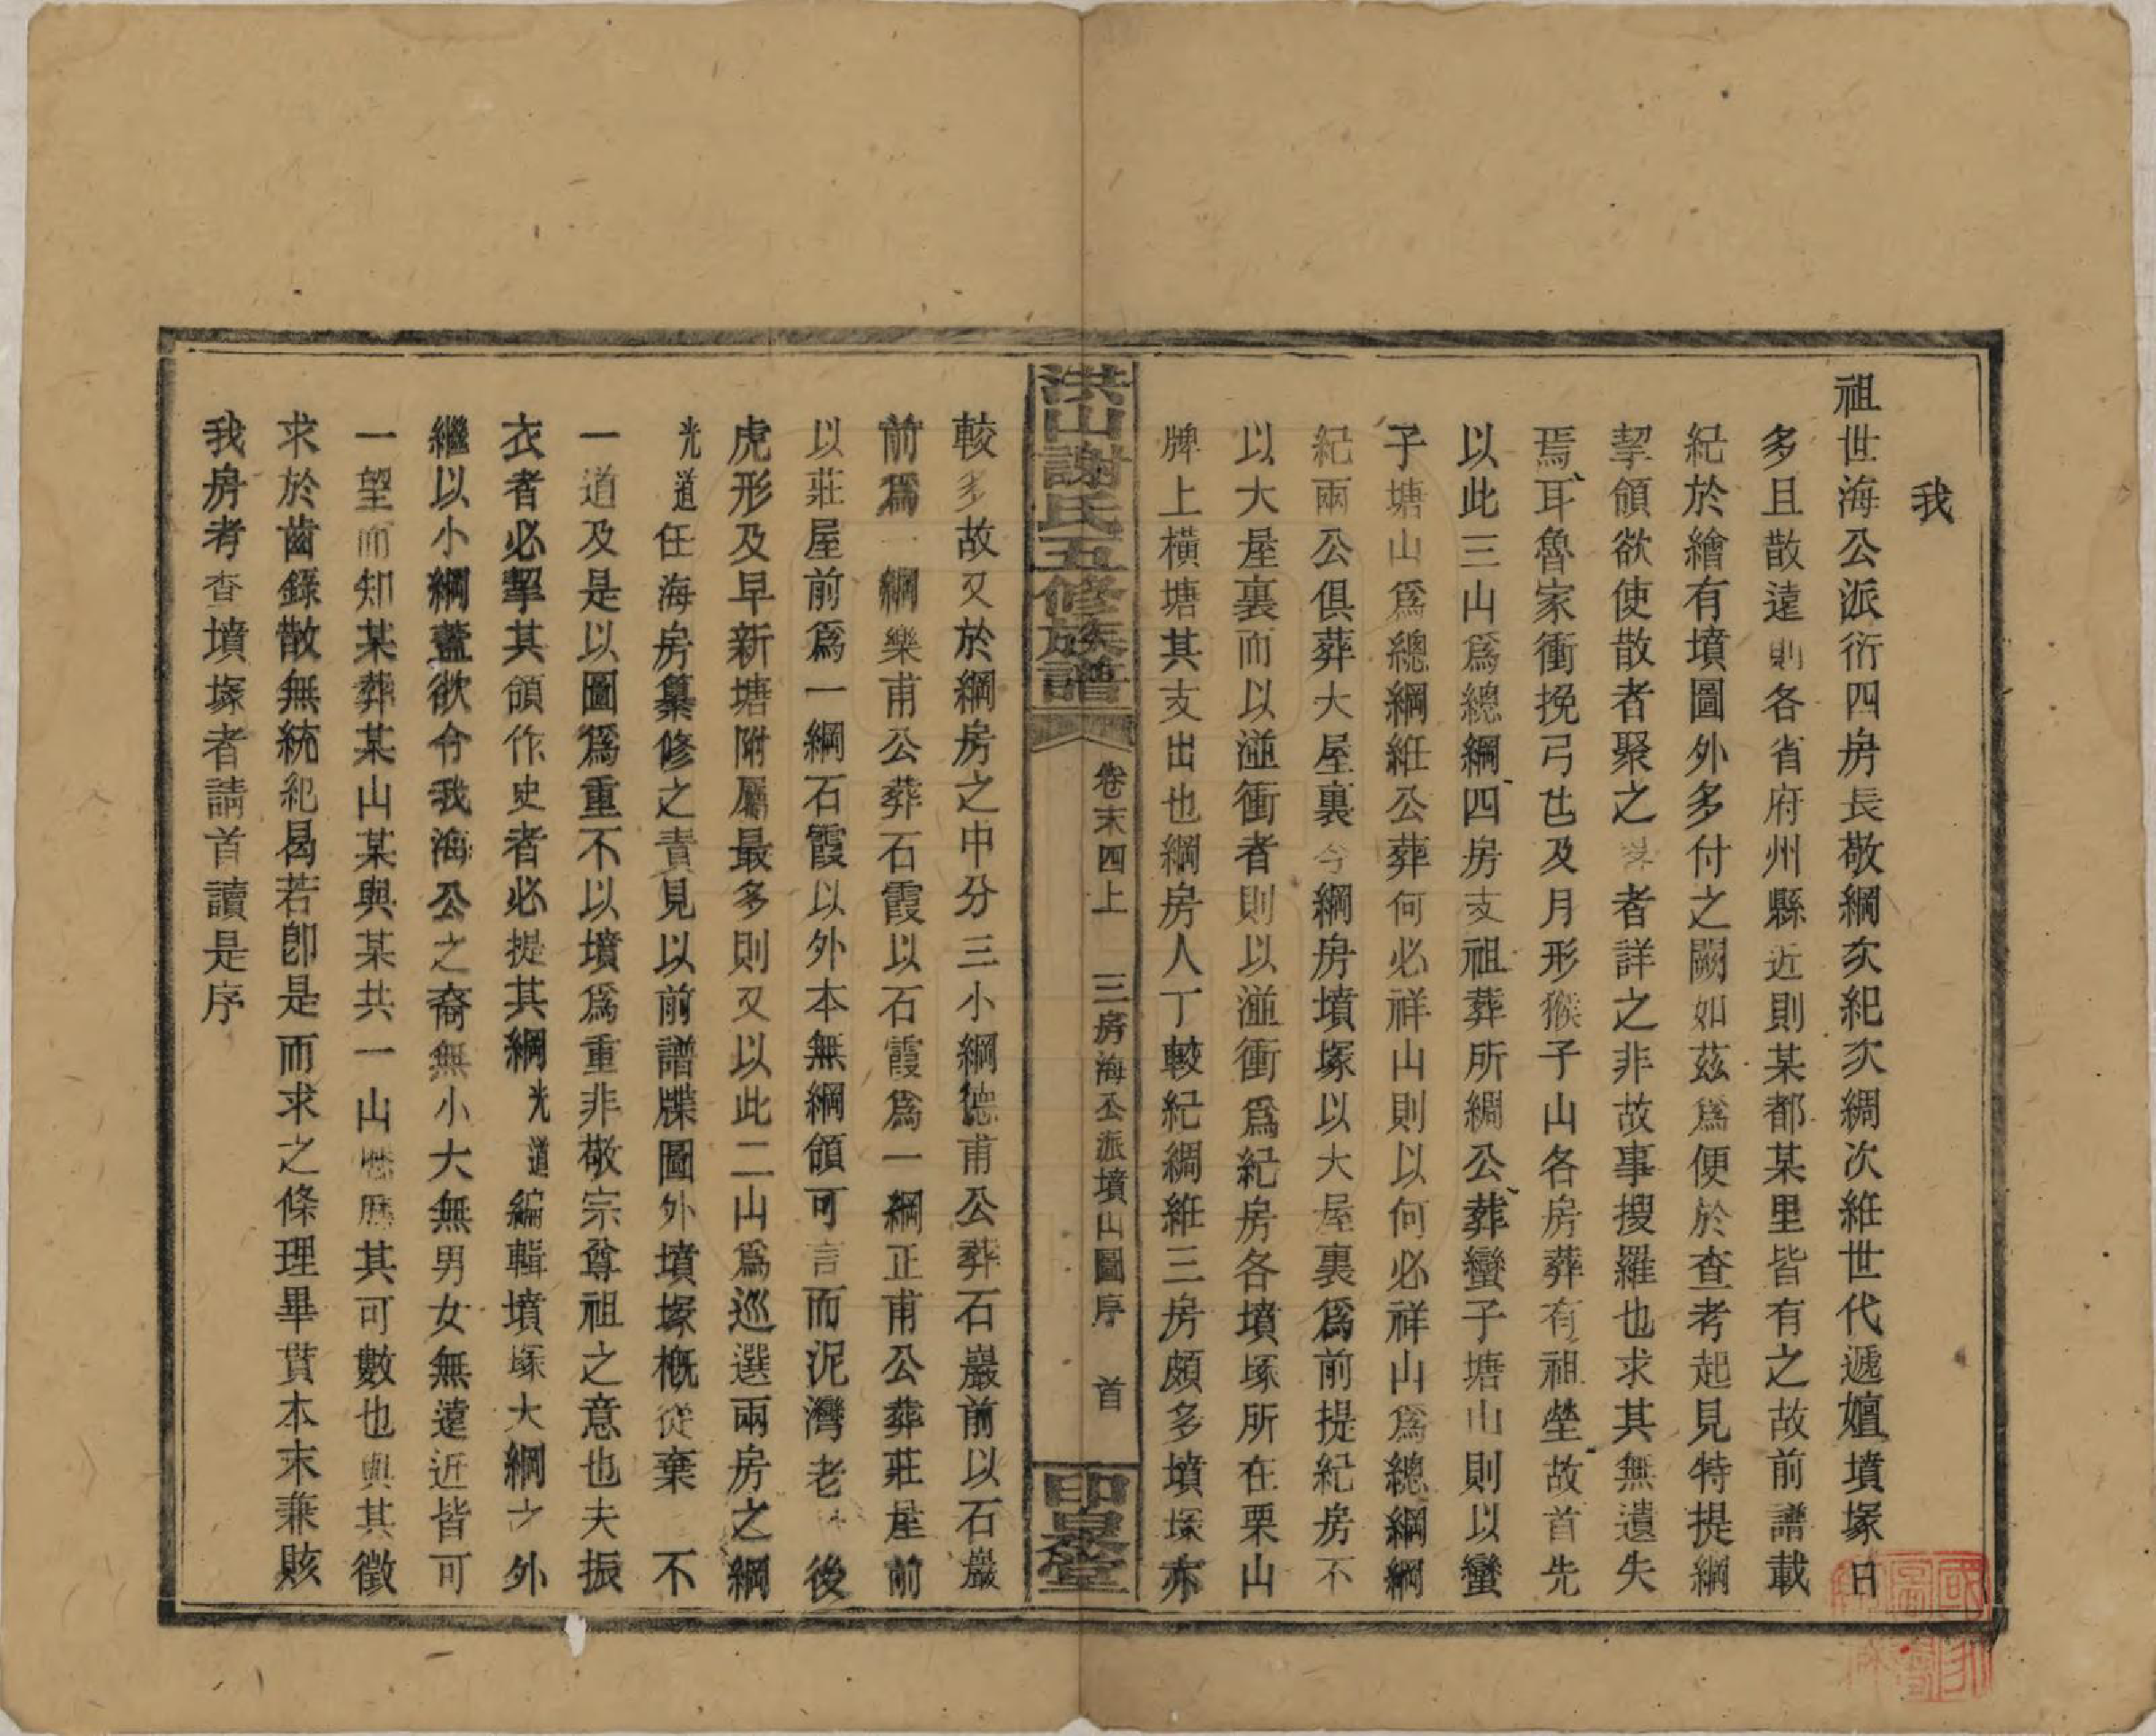 我
祖世海公派衍四房長敬綱次紀次綢次維世代遞嬗墳塚日
多且散遠則各省府州縣近則某都某里皆有之故前譜載
紀於繪有墳圖外多付之闕如茲爲便於查考起見特提綱
挈領欲使散者聚之者詳之非故事搜羅也求其無遺失
焉耳魯家衝挽弓岜及月形猴子山各房葬有祖塋故首先
以此三山爲總綱四房支祖葬所綢公葬蠻子塘山則以蠻
子塘山爲總綱維公葬何必祥山則以何必祥山爲總綱綱
紀兩公俱葬大屋裏今綱房墳塚以大屋裏爲前提紀房不
以大屋裏而以湴衝者則以湴衝爲紀房各墳塚所在栗山
牌上横塘其支出也綱房人丁較紀綢維三房頗多墳塚亦
洪山謝氏五修族譜
卷末四上 三房海公派墳山圖序 首
印泉堂
較多故又於綱房之中分三小綱德甫公葬石巖前以石巖
前爲一綱樂甫公葬石霞以石霞爲一綱正甫公葬莊屋前
以莊屋前爲一綱石霞以外本無綱領可言而泥灣老後
虎形及早新塘附屬最多則又以此二山爲巡選兩房之綱
光道任海房纂修之責見以前譜牒圖外墳塚概從棄不
一道及是以圖爲重不以墳爲重非敬宗尊祖之意也夫振
衣者必挈其領作史者必提其綱光道編輯墳塚大綱之外
繼以小綱蓋欲令我海公之裔無小大無男女無遠近皆可
一望而知某葬某山某與某共一山歷歷其可數也與其徵
求於齒錄散無統紀曷若卽是而求之條理畢貫本末兼賅
我房考查墳塚者請首讀是序